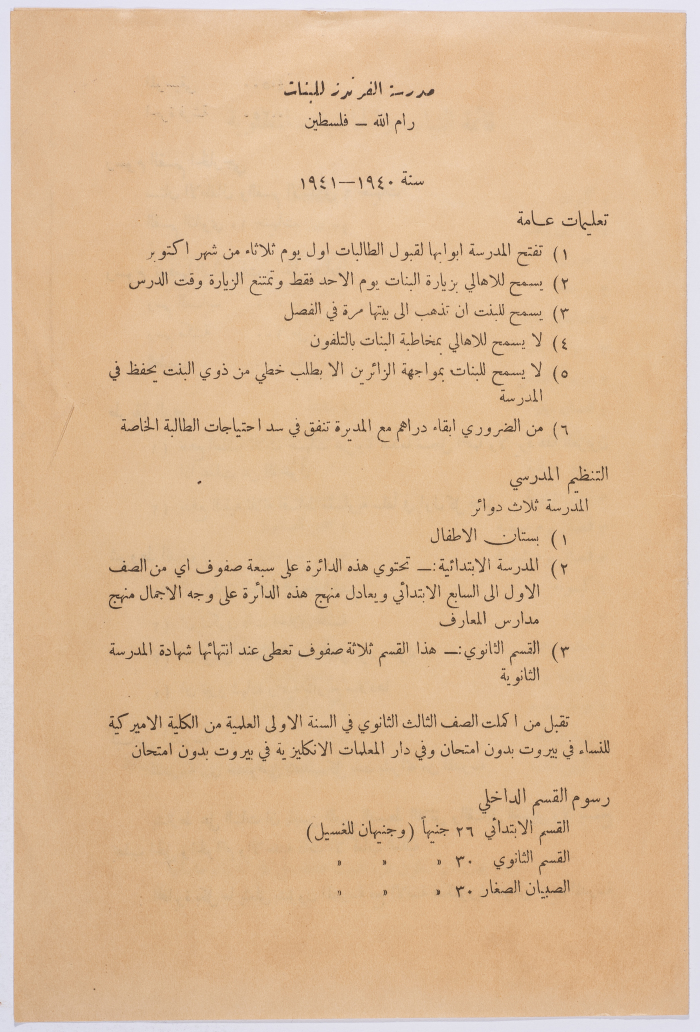 مدرسة الفرندز للبنات
رام الله — فلسطين
سنة ١٩٤٠—١٩٤١
تعليمات عامة
١) تفتح المدرسة ابوابها لقبول الطالبات اول يوم ثلاثاء من شهر اكتوبر
٢) يسمح للاهالي بزيارة البنات يوم الاحد فقط وتمتنع الزيارة وقت الدرس
٣) يسمح للبنت ان تذهب الى بيتها مرة في الفصل
٤) لا يسمح للاهالي بمخاطبة البنات بالتلفون
٥) لا يسمح للبنات بمواجهة الزائرين الا بطلب خطي من ذوي البنت يحفظ في
المدرسة
٦) من الضروري ابقاء دراهم مع المديرة تنفق في سد احتياجات الطالبة الخاصة
التنظيم المدرسي
المدرسة ثلاث دوائر
١) بستان الاطفال
٢) المدرسة الابتدائية:— تحتوي هذه الدائرة على سبعة صفوف اي من الصف
الاول الى السابع الابتدائي ويعادل منهج هذه الدائرة على وجه الاجمال منهج
مدارس المعارف
٣) القسم الثانوي:— هذا القسم ثلاثة صفوف تعطى عند انتهائها شهادة المدرسة
الثانوية
تقبل من اكملت الصف الثالث الثانوي في السنة الاولى العلمية من الكلية الاميركية
للنساء في بيروت بدون امتحان وفي دار المعلمات الانكليزية في بيروت بدون امتحان
رسوم القسم الداخلي
القسم الابتدائي ٢٦ جنيهاً (وجنيهان للغسيل)
القسم الثانوي ٣٠ » » »
الصبيان الصغار ٣٠ » » »